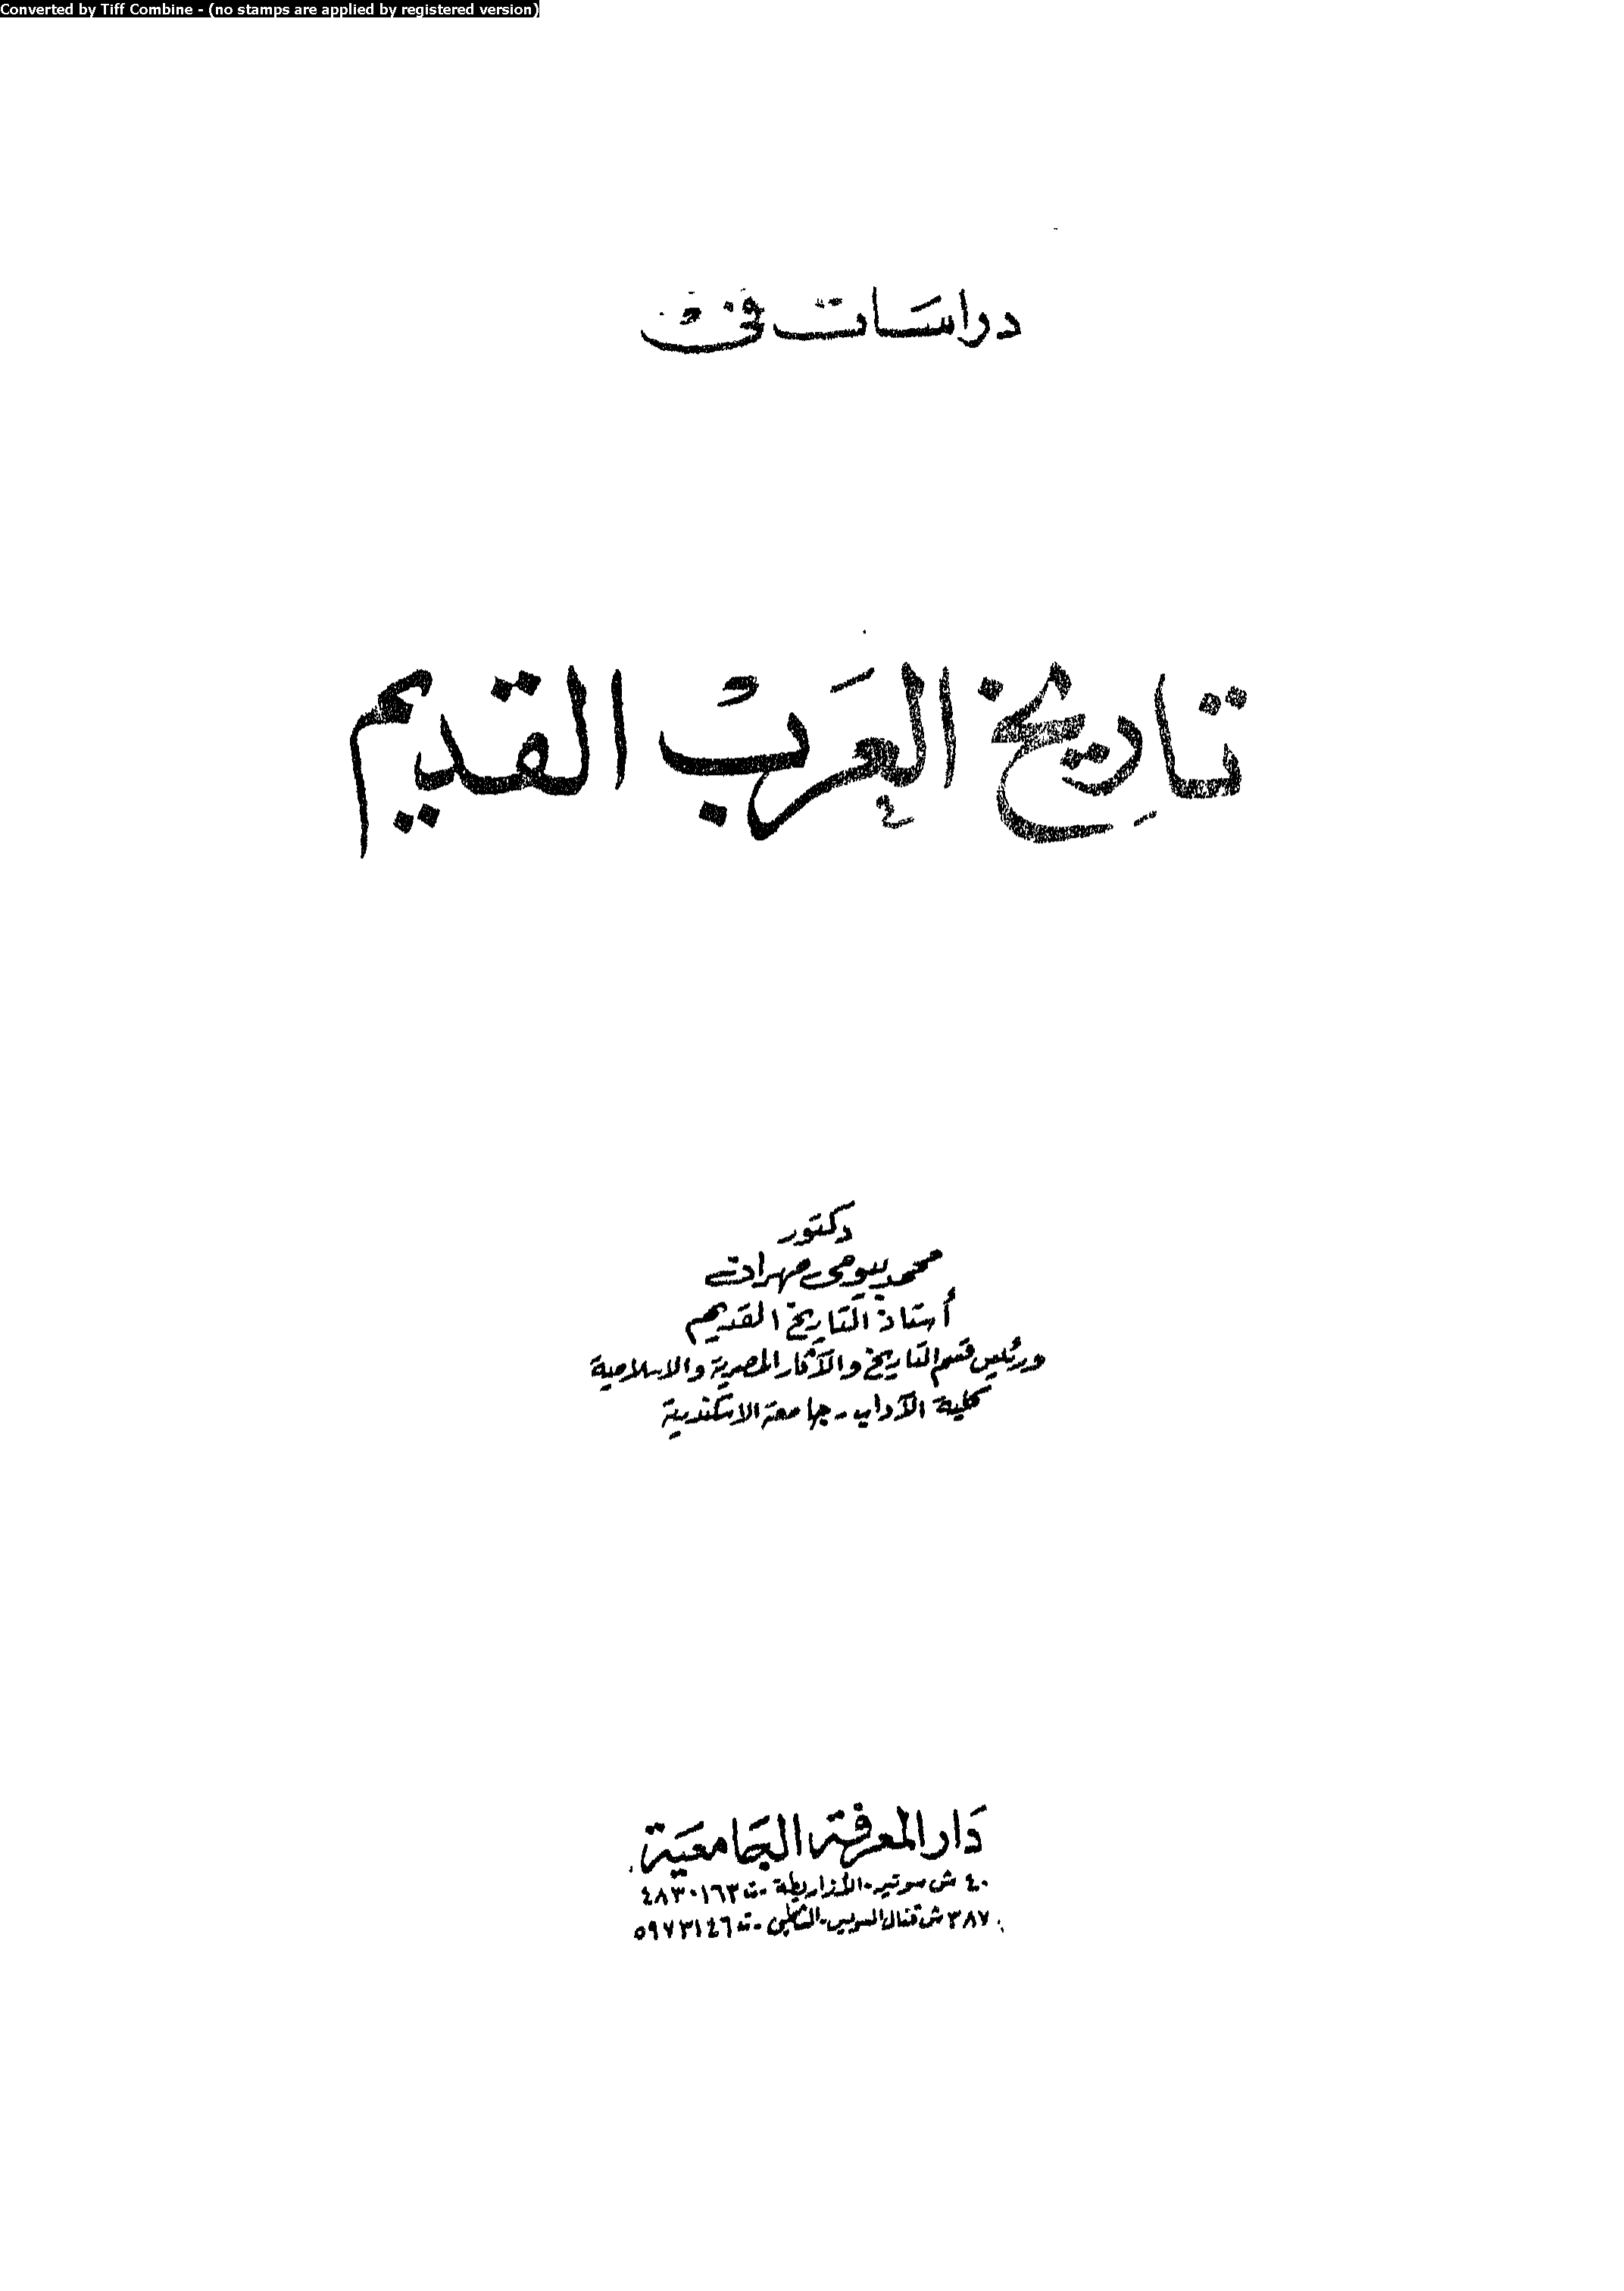 Converted by Tiff Combine - (no stamps are applied by registered version)
دراسات في
تاريخ العرب القديم
دكتور
محمد بيومى مهران
أستاذ التاريخ القديم
ورئيس قسم التاريخ والآثار المصرية والاسلامية
كلية الآداب - جامعة الاسكندرية
دار المعرفة الجامعية
٤٠ ش سوتير - الأزاريطة - ت ٤٨٣٠١٦٣
٣٨٧ ش قنال السويس - الشاطبى - ت ٥٩٧٣١٤٦